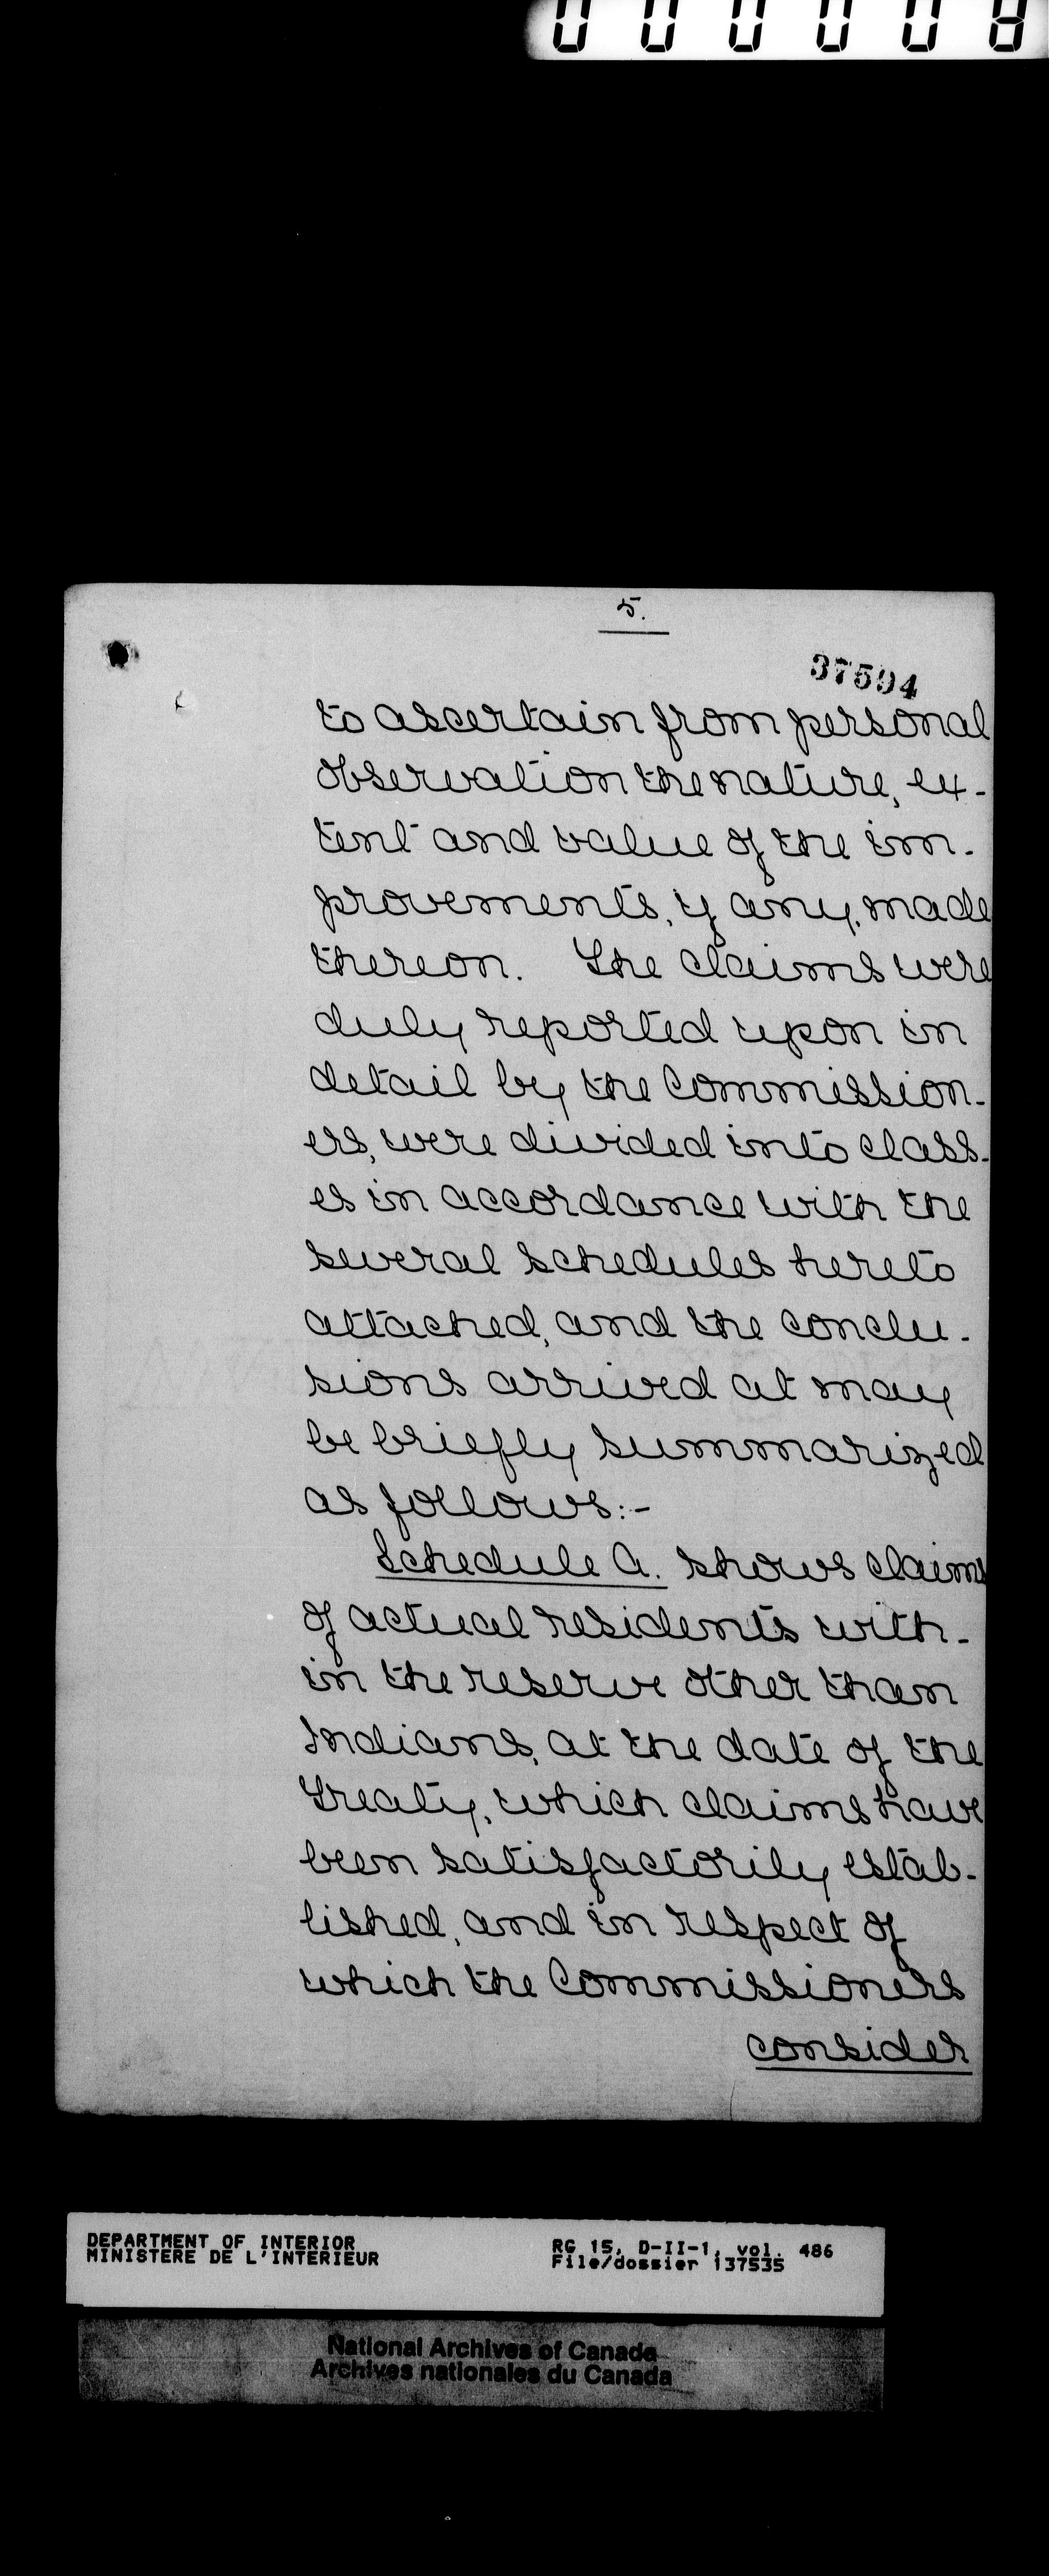 000008
5.
37594
to ascertain from personal
observation the nature, ex-
tent and value of the im-
provements, if any, made
thereon. The claims were
duly reported upon in
detail by the Commission-
ers, were divided into class-
es in accordance with the
several schedules hereto
attached, and the conclu-
sions arrived at may
be briefly summarized
as follows:-
Schedule A. shows claims
of actual residents with-
in the reserve other than
Indians, at the date of the
Treaty, which claims have
been satisfactorily estab-
lished, and in respect of
which the Commissioners
consider
DEPARTMENT OF INTERIOR
MINISTERE DE L'INTERIEUR
RG 15, D-II-1, vol. 486
File/dossier 137535
National Archives of Canada
Archives nationales du Canada